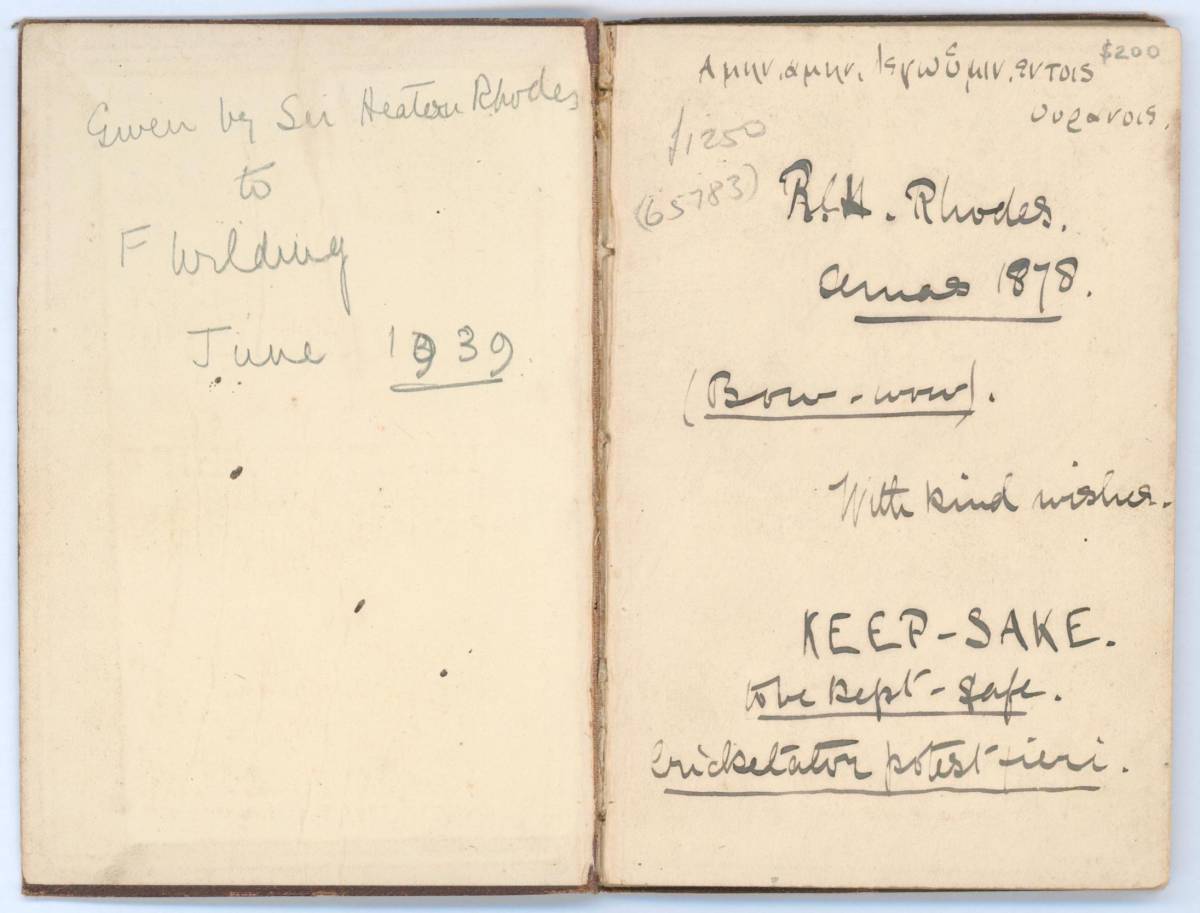 Given by Sir Heaton Rhodes
to
F Wilding
June 1939.
$200
Αμην. αμην. λεγω ὑμιν. εν τοις
ουρανοις.
£1250
(65783)
R.H. Rhodes.
Xmas 1878.
(Bow-wow).
With kind wishes.
KEEP-SAKE.
to be kept-safe.
Cricketator potest fieri.